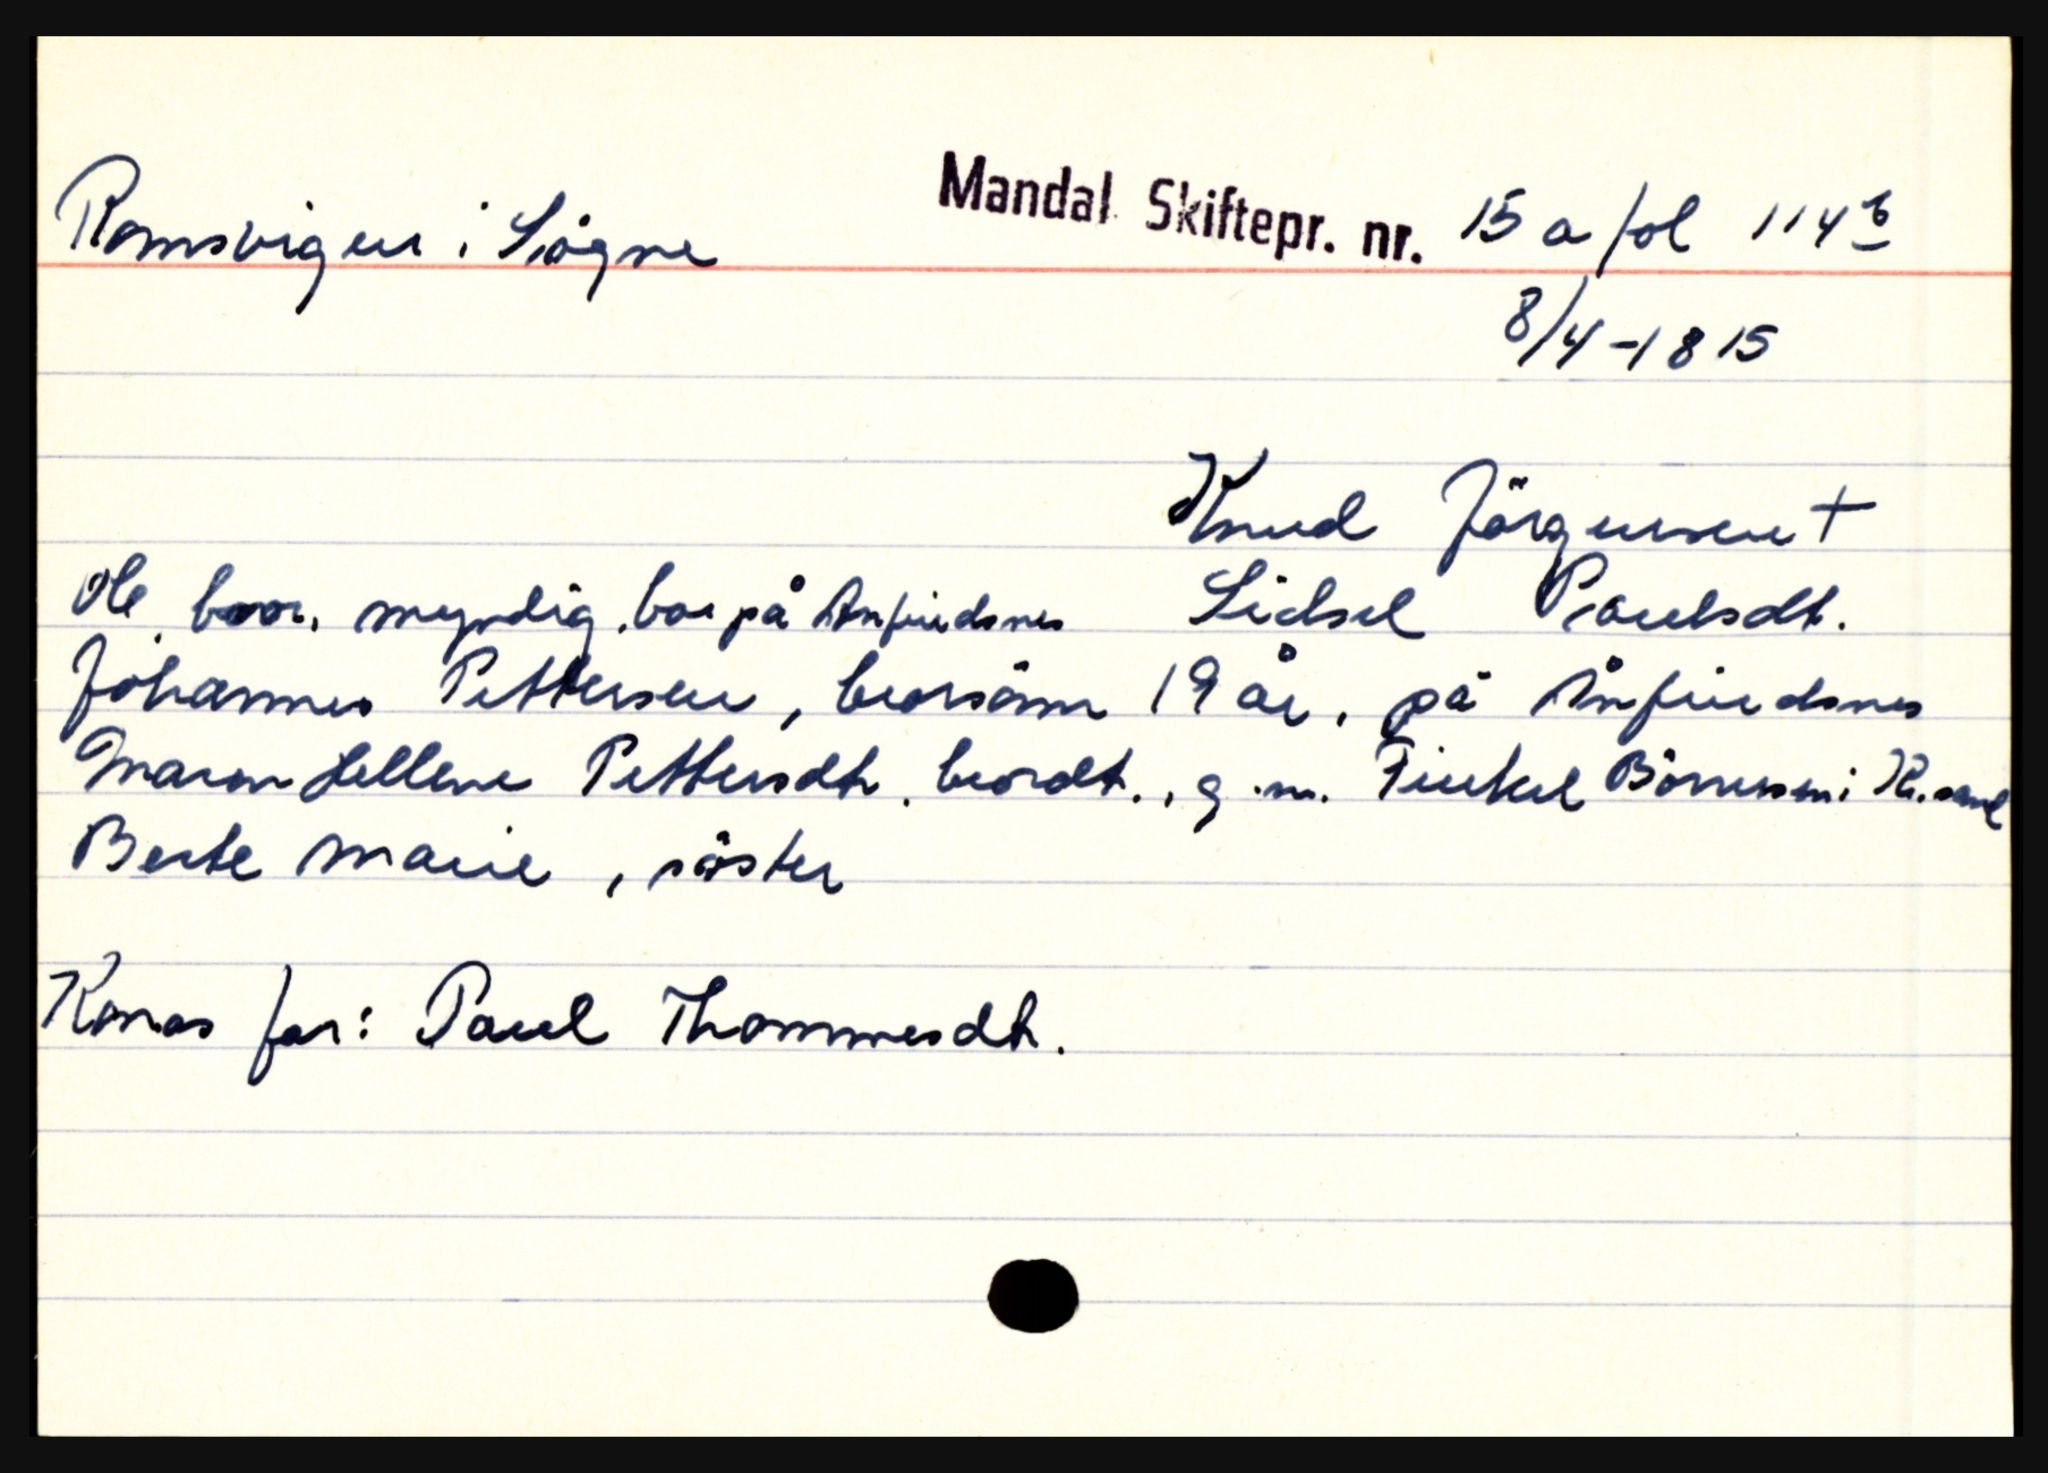 Romsvigen i Søgne Mandal Skiftepr. nr. 15 a fol 114 b
8/4-1815
Knud Jörgensen +
Ole, bror, myndig, bor på Anfindsnes Sidsel Paulsdt.
Johannes Pettersen, brorsönn 19 år, på Ånfindsnes
Maren Hellene Pettersdtr. brordt., g.m. Tinkel i Kr.sand
Berte Marie, söster
Konas far: Paul Thommesdtr.